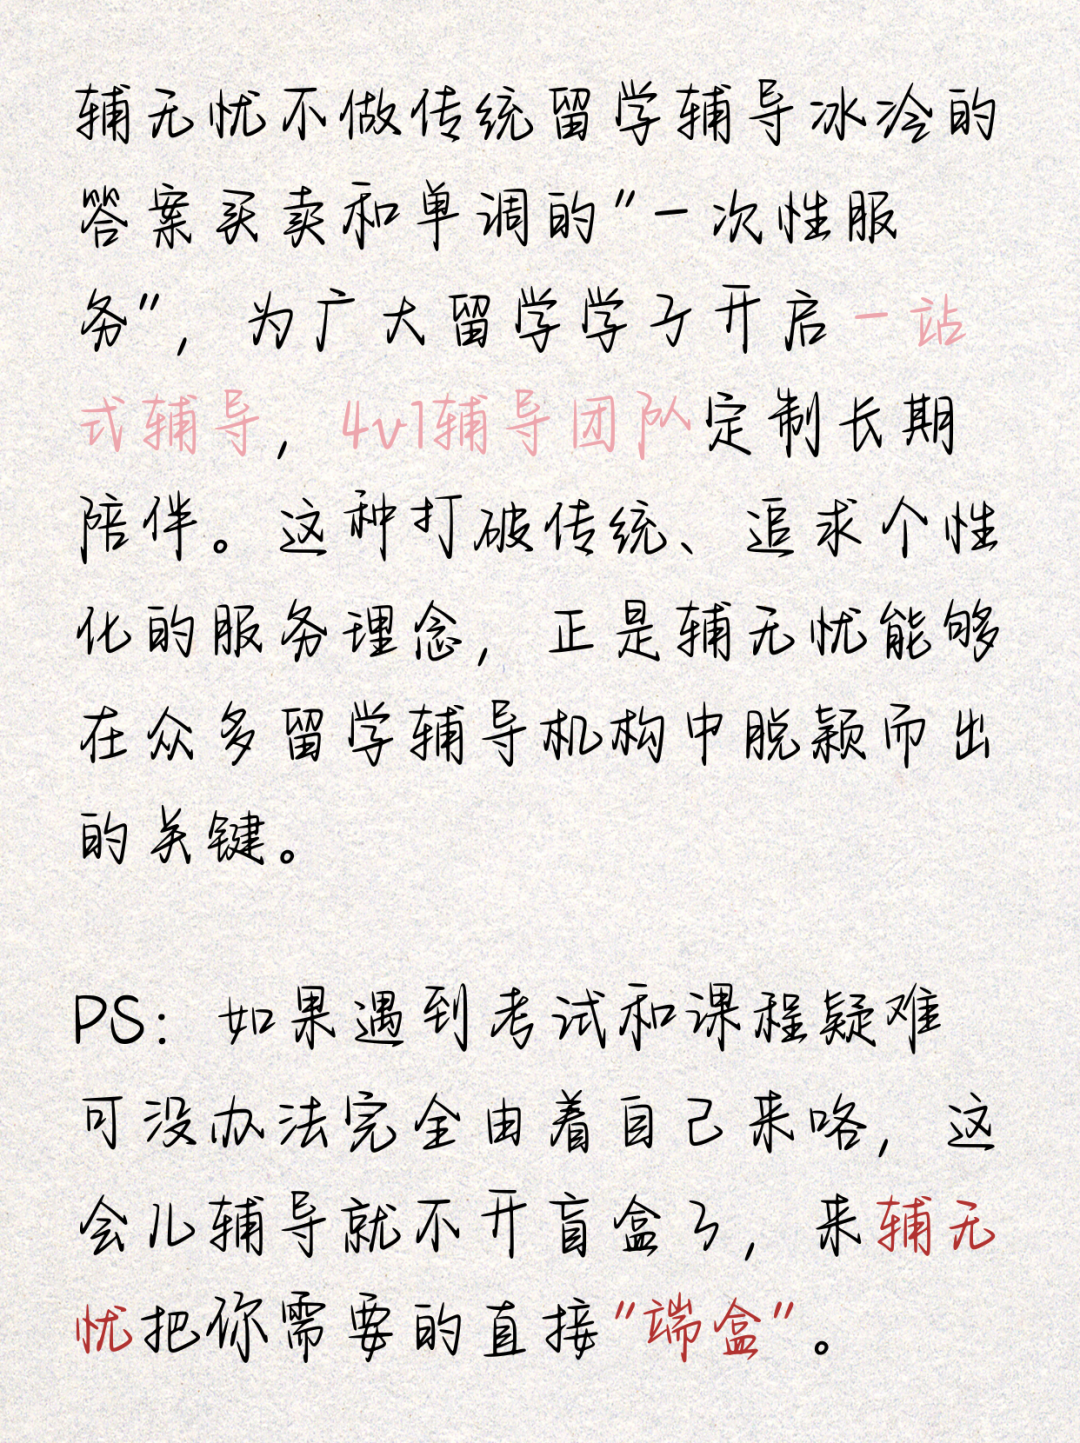 辅无忧不做传统留学辅导冰冷的
答案买卖和单调的"一次性服
务"，为广大留学学子开启一站
式辅导，4v1辅导团队定制长期
陪伴。这种打破传统、追求个性
化的服务理念，正是辅无忧能够
在众多留学辅导机构中脱颖而出
的关键。
PS：如果遇到考试和课程疑难
可没办法完全由着自己来咯，这
会儿辅导就不开盲盒了，来辅无
忧把你需要的直接"端盒"。